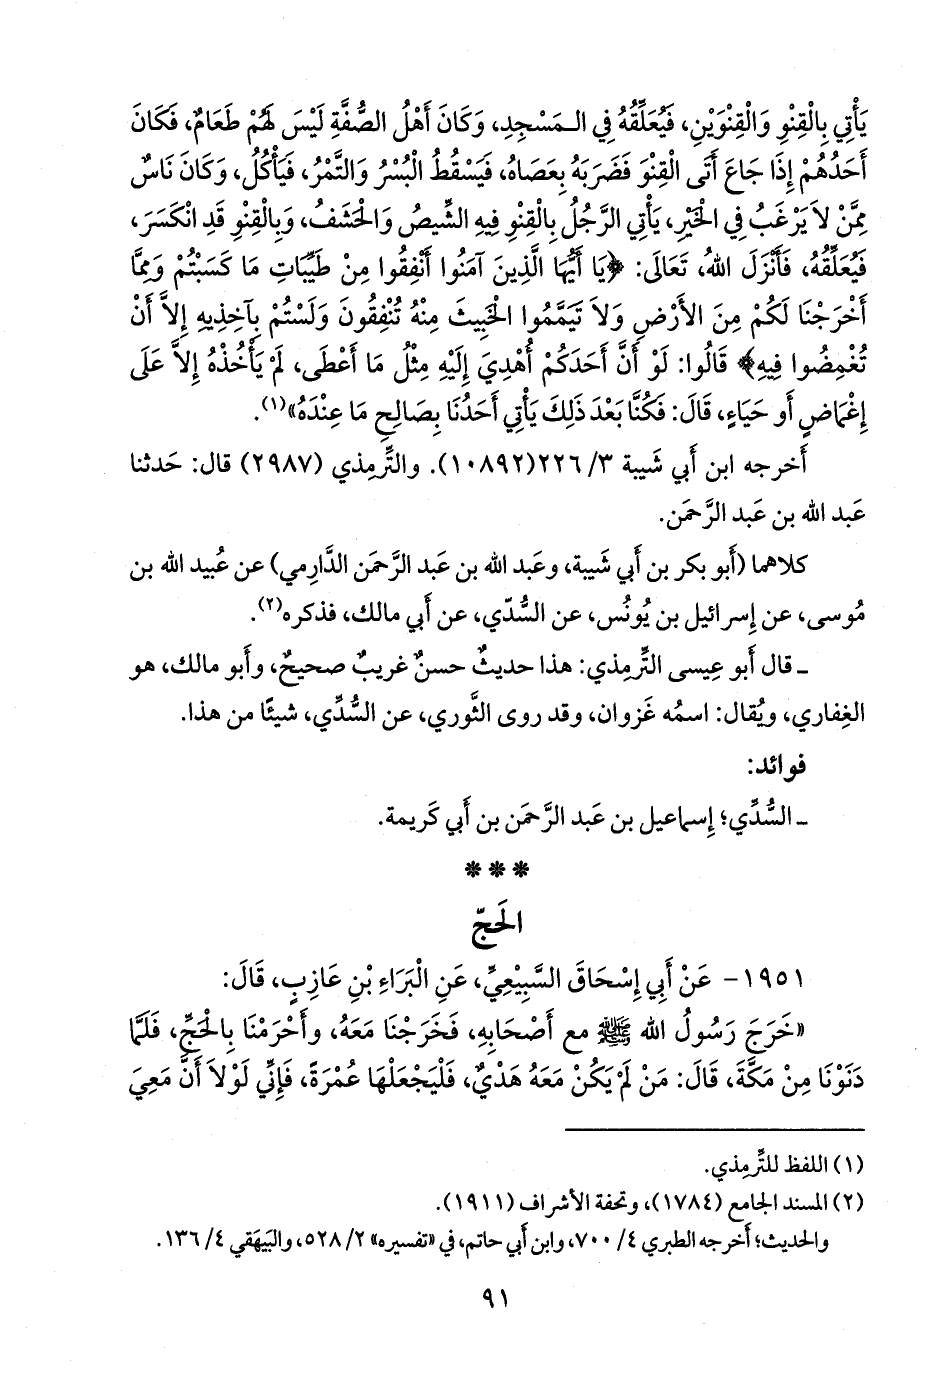 يَأْتِي بِالْقِنْوِ وَالْقِنْوَيْنِ، فَيُعَلِّقُهُ فِي الـمَسْجِدِ، وَكَانَ أَهْلُ الصُّفَّةِ لَيْسَ لَهُمْ طَعَامٌ، فَكَانَ
أَحَدُهُمْ إِذَا جَاعَ أَتَى الْقِنْوَ فَضَرَبَهُ بِعَصَاهُ، فَيَسْقُطُ الْبُسْرُ وَالتَّمْرُ، فَيَأْكُلُ، وَكَانَ نَاسٌ
مِمَّنْ لاَ يَرْغَبُ فِي الْخَيْرِ، يَأْتِي الرَّجُلُ بِالْقِنْوِ فِيهِ الشِّيصُ وَالْحَشَفُ، وَبِالْقِنْوِ قَدِ انْكَسَرَ،
فَيُعَلِّقُهُ، فَأَنْزَلَ اللهُ، تَعَالَى: ﴿يَا أَيُّهَا الَّذِينَ آمَنُوا أَنْفِقُوا مِنْ طَيِّبَاتِ مَا كَسَبْتُمْ وَمِمَّا
أَخْرَجْنَا لَكُمْ مِنَ الأَرْضِ وَلاَ تَيَمَّمُوا الْخَبِيثَ مِنْهُ تُنْفِقُونَ وَلَسْتُمْ بِآخِذِيهِ إِلاَّ أَنْ
تُغْمِضُوا فِيهِ﴾ قَالُوا: لَوْ أَنَّ أَحَدَكُمْ أُهْدِيَ إِلَيْهِ مِثْلُ مَا أَعْطَى، لَمْ يَأْخُذْهُ إِلاَّ عَلَى
إِغْمَاضٍ أَو حَيَاءٍ، قَالَ: فَكُنَّا بَعْدَ ذَلِكَ يَأْتِي أَحَدُنَا بِصَالِحِ مَا عِنْدَهُ»(١).
أَخرجه ابن أَبي شَيبة ٣/ ٢٢٦(١٠٨٩٢). والتِّرمِذي (٢٩٨٧) قال: حَدثنا
عَبد الله بن عَبد الرَّحمَن.
كلاهما (أَبو بكر بن أَبي شَيبة، وعَبد الله بن عَبد الرَّحمَن الدَّارِمي) عن عُبيد الله بن
مُوسى، عن إِسرائيل بن يُونُس، عن السُّدّي، عن أَبي مالك، فذكره(٢).
ـ قال أَبو عِيسى التِّرمِذي: هذا حديثٌ حسنٌ غريبٌ صحيحٌ، وأَبو مالك، هو
الغِفاري، ويُقال: اسمُه غَزوان، وقد روى الثَّوري، عن السُّدِّي، شيئًا من هذا.
فوائد:
ـ السُّدِّي؛ إِسماعيل بن عَبد الرَّحمَن بن أَبي كَريمة.
* * *
الحَجّ
١٩٥١- عَنْ أَبِي إِسْحَاقَ السَّبِيعِيِّ، عَنِ الْبَرَاءِ بْنِ عَازِبٍ، قَالَ:
«خَرَجَ رَسُولُ الله ﷺ مع أَصْحَابِهِ، فَخَرَجْنَا مَعَهُ، وأَحْرَمْنَا بِالْحَجِّ، فَلَمَّا
دَنَوْنَا مِنْ مَكَّةَ، قَالَ: مَنْ لَمْ يَكُنْ مَعَهُ هَدْيٌ، فَلْيَجْعَلْهَا عُمْرَةً، فَإِنِّي لَوْلاَ أَنَّ مَعِيَ
(١) اللفظ للتِّرمِذي.
(٢) المسند الجامع (١٧٨٤)، وتحفة الأشراف (١٩١١).
والحديث؛ أَخرجه الطبري ٤/ ٧٠٠، وابن أَبي حاتم، في «تفسيره» ٢/ ٥٢٨، والبَيهَقي ٤/ ١٣٦.
٩١